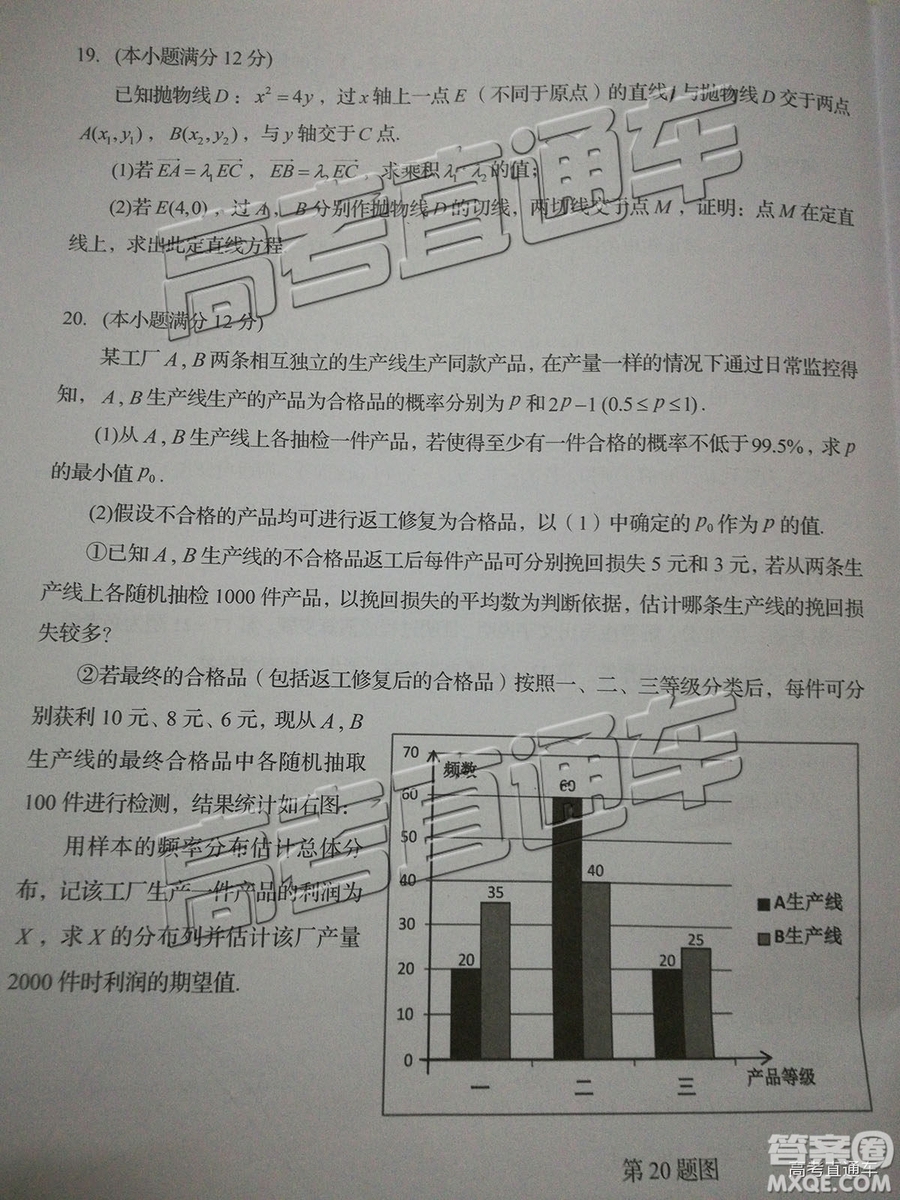 19. (本小题满分12分)
已知抛物线D：x²=4y，过x轴上一点E（不同于原点）的直线l与抛物线D交于两点
A(x₁,y₁)，B(x₂,y₂)，与y轴交于C点.
(1)若EA=λ₁EC，EB=λ₂EC，求乘积λ₁·λ₂的值；
(2)若E(4,0)，过A，B分别作抛物线D的切线，两切线交于点M，证明：点M在定直
线上，求出此定直线方程
20. (本小题满分12分)
某工厂A,B两条相互独立的生产线生产同款产品，在产量一样的情况下通过日常监控得
知，A,B生产线生产的产品为合格品的概率分别为p和2p-1(0.5≤p≤1).
(1)从A,B生产线上各抽检一件产品，若使得至少有一件合格的概率不低于99.5%，求p
的最小值p₀.
(2)假设不合格的产品均可进行返工修复为合格品，以（1）中确定的p₀作为p的值.
①已知A,B生产线的不合格品返工后每件产品可分别挽回损失5元和3元，若从两条生
产线上各随机抽检1000件产品，以挽回损失的平均数为判断依据，估计哪条生产线的挽回损
失较多？
②若最终的合格品（包括返工修复后的合格品）按照一、二、三等级分类后，每件可分
别获利10元、8元、6元，现从A,B
生产线的最终合格品中各随机抽取
100件进行检测，结果统计如右图：
用样本的频率分布估计总体分
布，记该工厂生产一件产品的利润为
X，求X的分布列并估计该厂产量
2000件时利润的期望值.
70
频数
60
60
50
40
40
35
30
25
20
20
20
10
0
A生产线
B生产线
一 二 三
产品等级
第20题图
高考直通车
高考直通车
答案圈
高考直通车
MXQE.COM